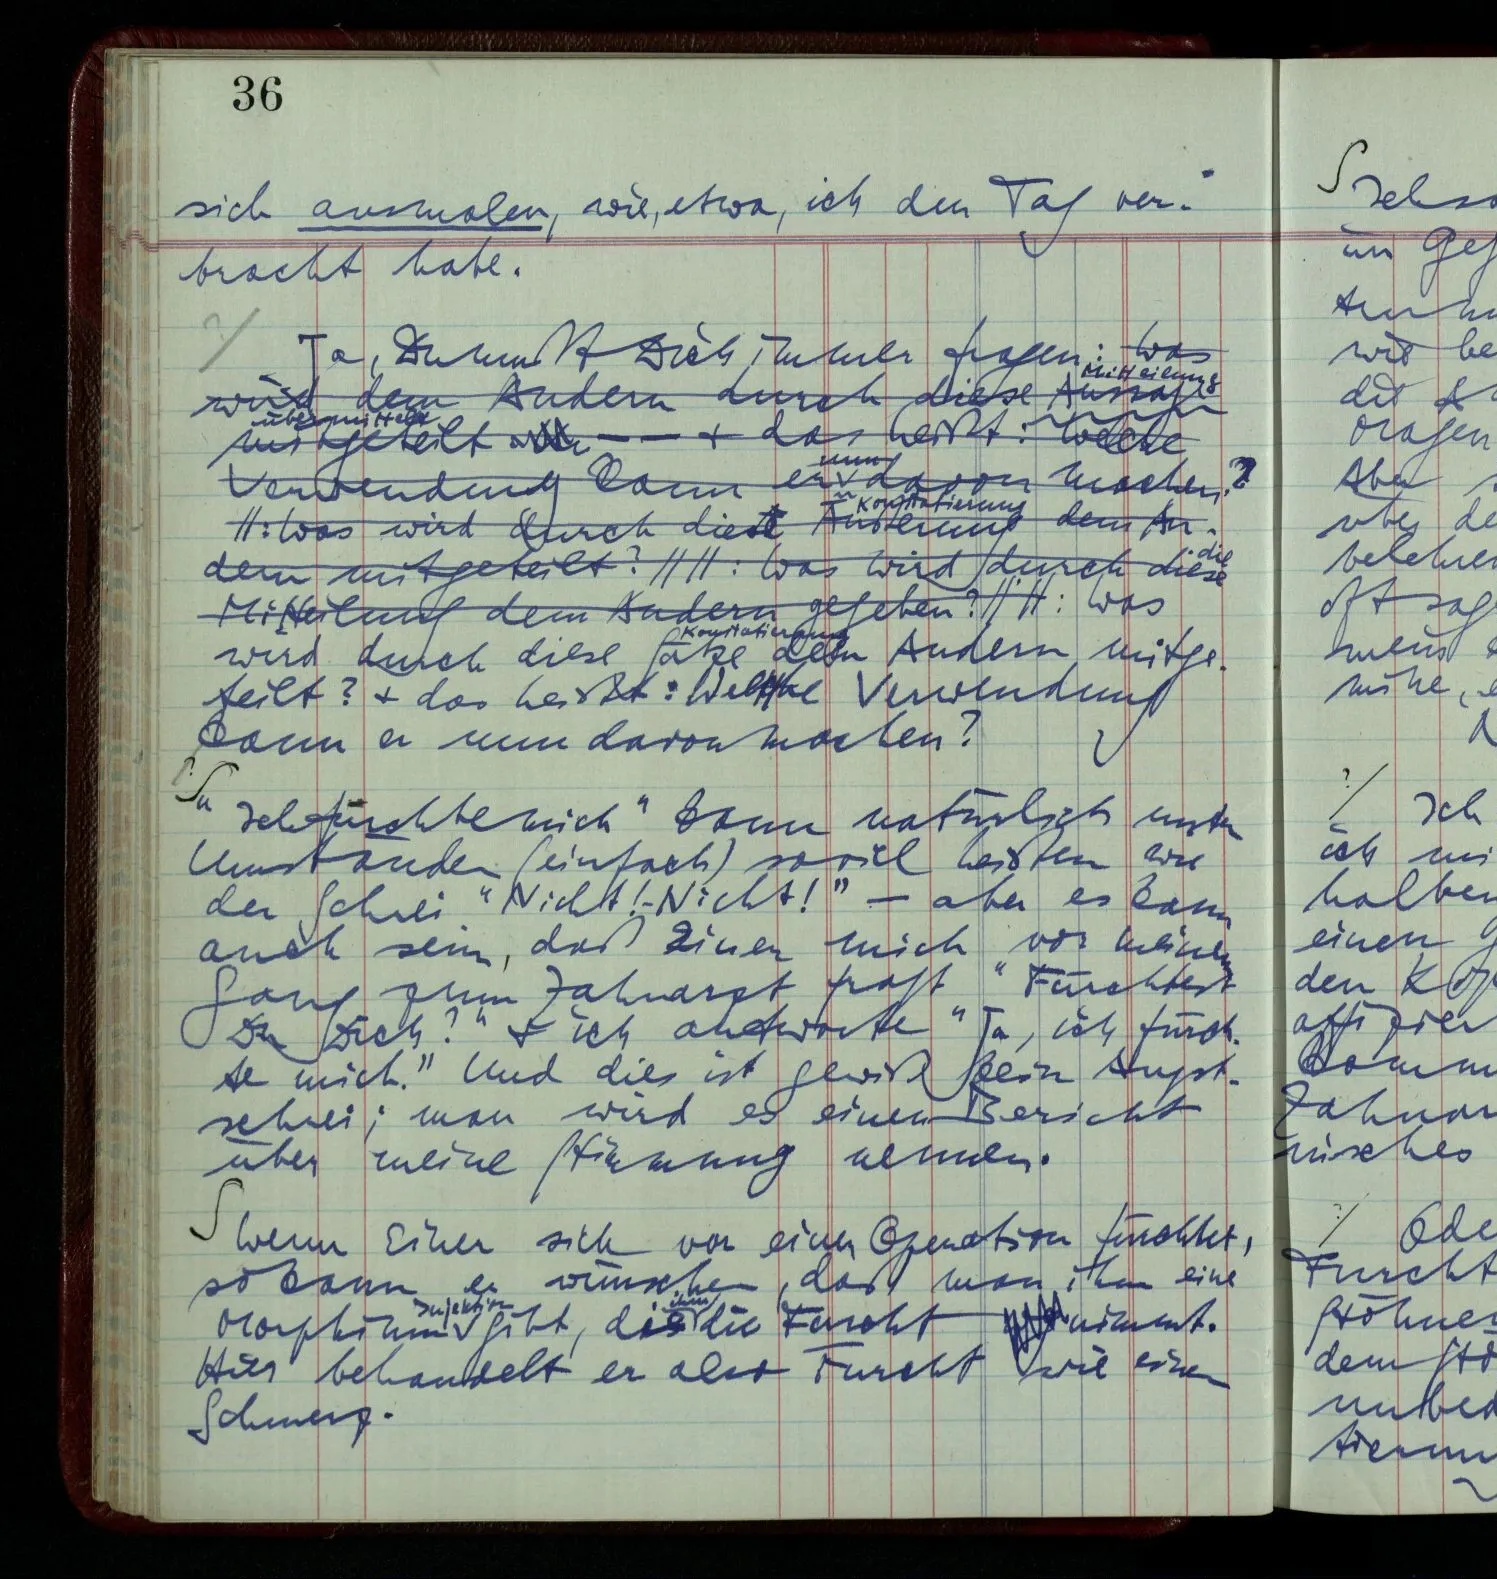 36
sich ausmalen, wie, etwa, ich den Tag ver-
bracht habe.
?/ Ja, Du mußt Dich immer fragen: Was
Mitteilung
wird dem Andern durch diese Aussage
übermittelt
mitgeteilt — — + das heißt: Welche
nun
Verwendung kann er davon machen?
Konstatierung
//: Was wird durch diese Äußerung dem An-
dern mitgeteilt? // //: Was wird durch diese
die
Mitteilung dem Andern gegeben? // //: Was
Konstatierung
wird durch diese Sätze dem Andern mitge-
teilt? + das heißt: Welche Verwendung
kann er nun davon machen?
? S "Ich fürchte mich" kann natürlich unter
Umständen (einfach) soviel heißen wie
der Schrei "Nicht!-Nicht!" — aber es kann
auch sein, daß Einer mich vor meinem
Gang zum Zahnarzt fragt "Fürchtest
Du Dich?" + ich antworte "Ja, ich fürch-
te mich." Und dies ist gewiß kein Angst-
schrei; man wird es einen Bericht
über meine Stimmung nennen.
S Wenn Einer sich vor einer Operation fürchtet,
so kann er wünschen, daß man ihm eine
Injektion ihm
Morphium gibt, die die Furcht nimmt.
Hier behandelt er also Furcht wie einen
Schmerz.
S Ich
im
wir
die
Aber
belehren
oft
?/ Ich
ich
halben
einen
den
Komm
?/ Ode
Furcht
Stöhnen
dem